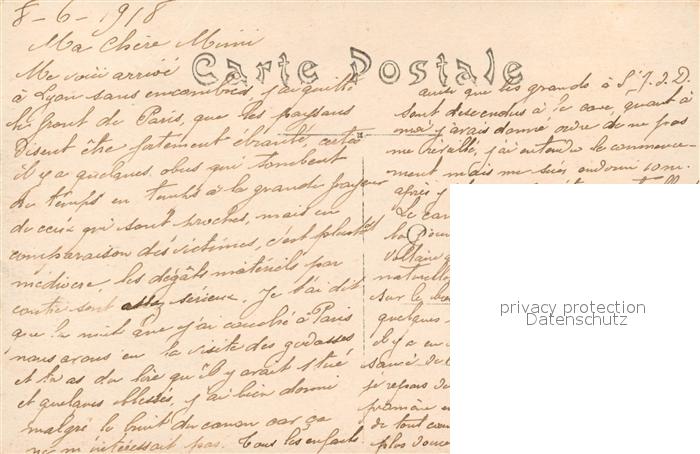 8-6-1918
Ma Chère Mimi
Carte Postale
Me voici arrivé
à Lyon sans encombres, j'ai quitté
le front de Paris, que les paysans
disent être fortement ébranlé, certes
il y a quelques obus qui tombent
de temps en temps à la grande frayeur
de ceux qui sont proches, mais en
comparaison des victimes, c'est plutôt
médiocre, les dégâts matériels par
contre sont assez sérieux. Je t'ai dit
que la nuit que j'ai couchée à Paris
nous avons eu la visite des
et tu as du lire qu'il y avait 1 tué
et quelques blessés, j'ai bien dormi
malgré le bruit du canon car ça
ne m'intéressait pas. Tous les enfants
ainsi que les grands à St J. D.
sont descendus à la cave, quant à
moi j'avais donné ordre de ne pas
me réveiller, j'ai entendu le commence-
ment mais me suis endormi
après
Le
Voltaire
naturelle
sur le
quelques
il y a eu
de
je repars
de tout
plus
privacy protection
Datenschutz